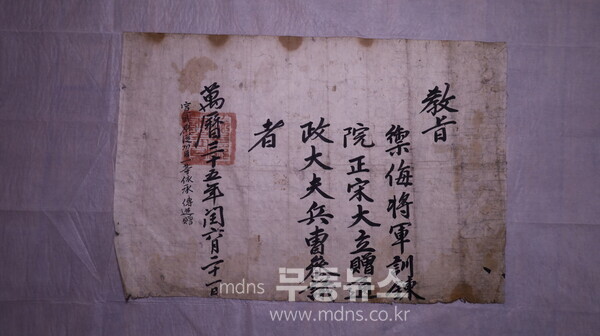 教旨
禦侮將軍訓鍊
院正宋大立贈
政大夫兵曹參
者
萬曆三十五年閏六月二十一日
等 承 傳 贈
mdns 무등뉴스
www.mdns.co.kr